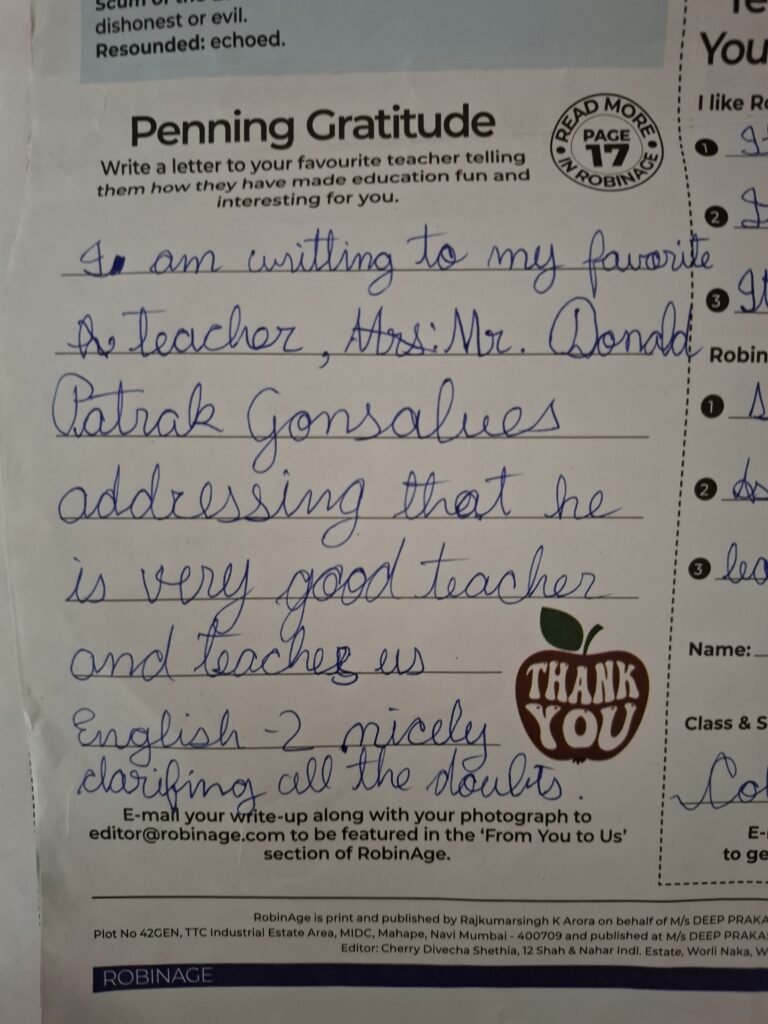 dishonest or evil.
Resounded: echoed.
You
Penning Gratitude
READ MORE
PAGE
17
IN ROBINAGE
Write a letter to your favourite teacher telling
them how they have made education fun and
interesting for you.
I am writting to my favorite
teacher, Mrs: Mr. Donald
Patrak Gonsalues
addressing that he
is very good teacher
and teaches us
English -2 nicely
clarifing all the doubts.
THANK
YOU
E-mail your write-up along with your photograph to
editor@robinage.com to be featured in the 'From You to Us'
section of RobinAge.
I like
1
2
3
Robin
1
2
3
Name:
Class & S
to ge
RobinAge is print and published by Rajkumarsingh K Arora on behalf of M/s DEEP PRAKA
Plot No 42GEN, TTC Industrial Estate Area, MIDC, Mahape, Navi Mumbai - 400709 and published at M/s DEEP PRAKA
Editor: Cherry Divecha Shethia, 12 Shah & Nahar Indl. Estate, Worli Naka, W
ROBINAGE